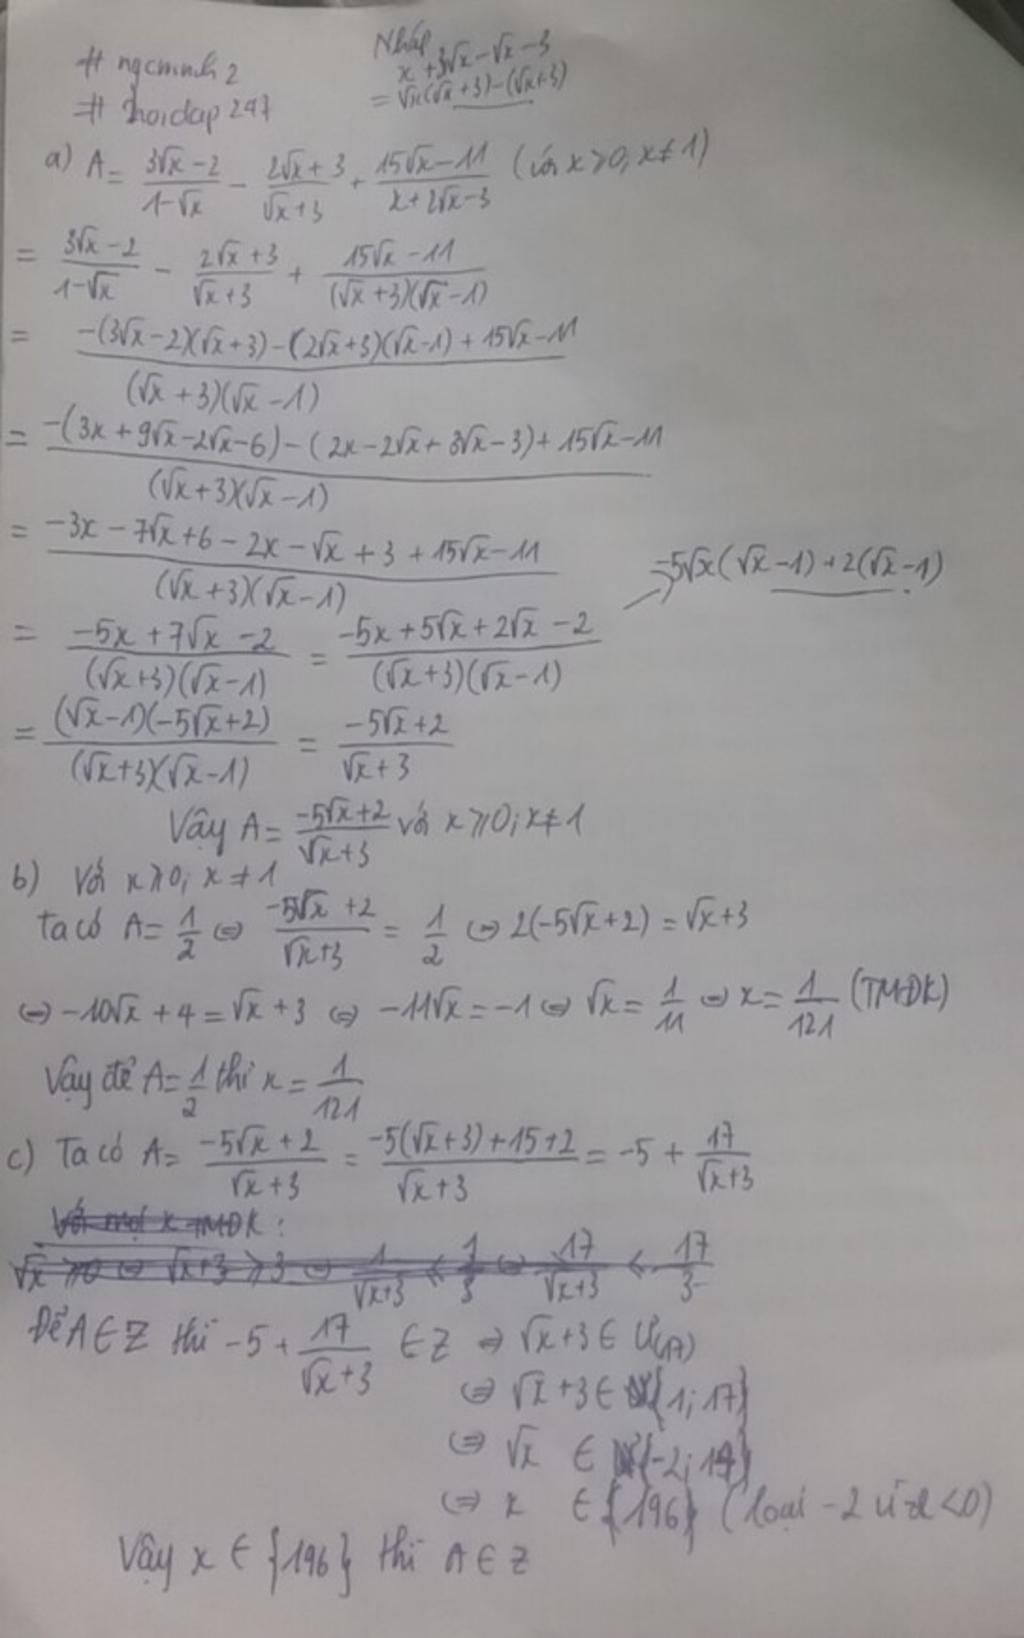 # ngcminh2
# hoidap247
Nháp
x + 3√x - √x - 3
= √x(√x + 3) - (√x + 3)
a) A = (3√x - 2)/(1 - √x) - (2√x + 3)/(√x + 3) + (15√x - 11)/(x + 2√x - 3) (với x ≥ 0, x ≠ 1)
= (3√x - 2)/(1 - √x) - (2√x + 3)/(√x + 3) + (15√x - 11)/((√x + 3)(√x - 1))
= (-(3√x - 2)(√x + 3) - (2√x + 3)(√x - 1) + 15√x - 11)/((√x + 3)(√x - 1))
= (-(3x + 9√x - 2√x - 6) - (2x - 2√x + 3√x - 3) + 15√x - 11)/((√x + 3)(√x - 1))
= (-3x - 7√x + 6 - 2x - √x + 3 + 15√x - 11)/((√x + 3)(√x - 1))
= (-5x + 7√x - 2)/((√x + 3)(√x - 1)) = (-5x + 5√x + 2√x - 2)/((√x + 3)(√x - 1)) → -5√x(√x - 1) + 2(√x - 1)
= ((√x - 1)(-5√x + 2))/((√x + 3)(√x - 1)) = (-5√x + 2)/(√x + 3)
Vậy A = (-5√x + 2)/(√x + 3) với x ≥ 0; x ≠ 1
b) Với x ≥ 0; x ≠ 1
Ta có A = 1/2 ⇔ (-5√x + 2)/(√x + 3) = 1/2 ⇔ 2(-5√x + 2) = √x + 3
⇔ -10√x + 4 = √x + 3 ⇔ -11√x = -1 ⇔ √x = 1/11 ⇔ x = 1/121 (TMĐK)
Vậy để A = 1/2 thì x = 1/121
c) Ta có A = (-5√x + 2)/(√x + 3) = (-5(√x + 3) + 15 + 2)/(√x + 3) = -5 + 17/(√x + 3)
Với mọi x TMĐK:
√x ≥ 0 ⇔ √x + 3 ≥ 3 ⇔ 1/(√x + 3) ≤ 1/3 ⇔ 17/(√x + 3) ≤ 17/3
Để A ∈ Z thì -5 + 17/(√x + 3) ∈ Z ⇒ √x + 3 ∈ Ư(17)
⇔ √x + 3 ∈ {1; 17}
⇔ √x ∈ {-2; 14}
⇔ x ∈ {196} (loại -2 vì x < 0)
Vậy x ∈ {196} thì A ∈ Z